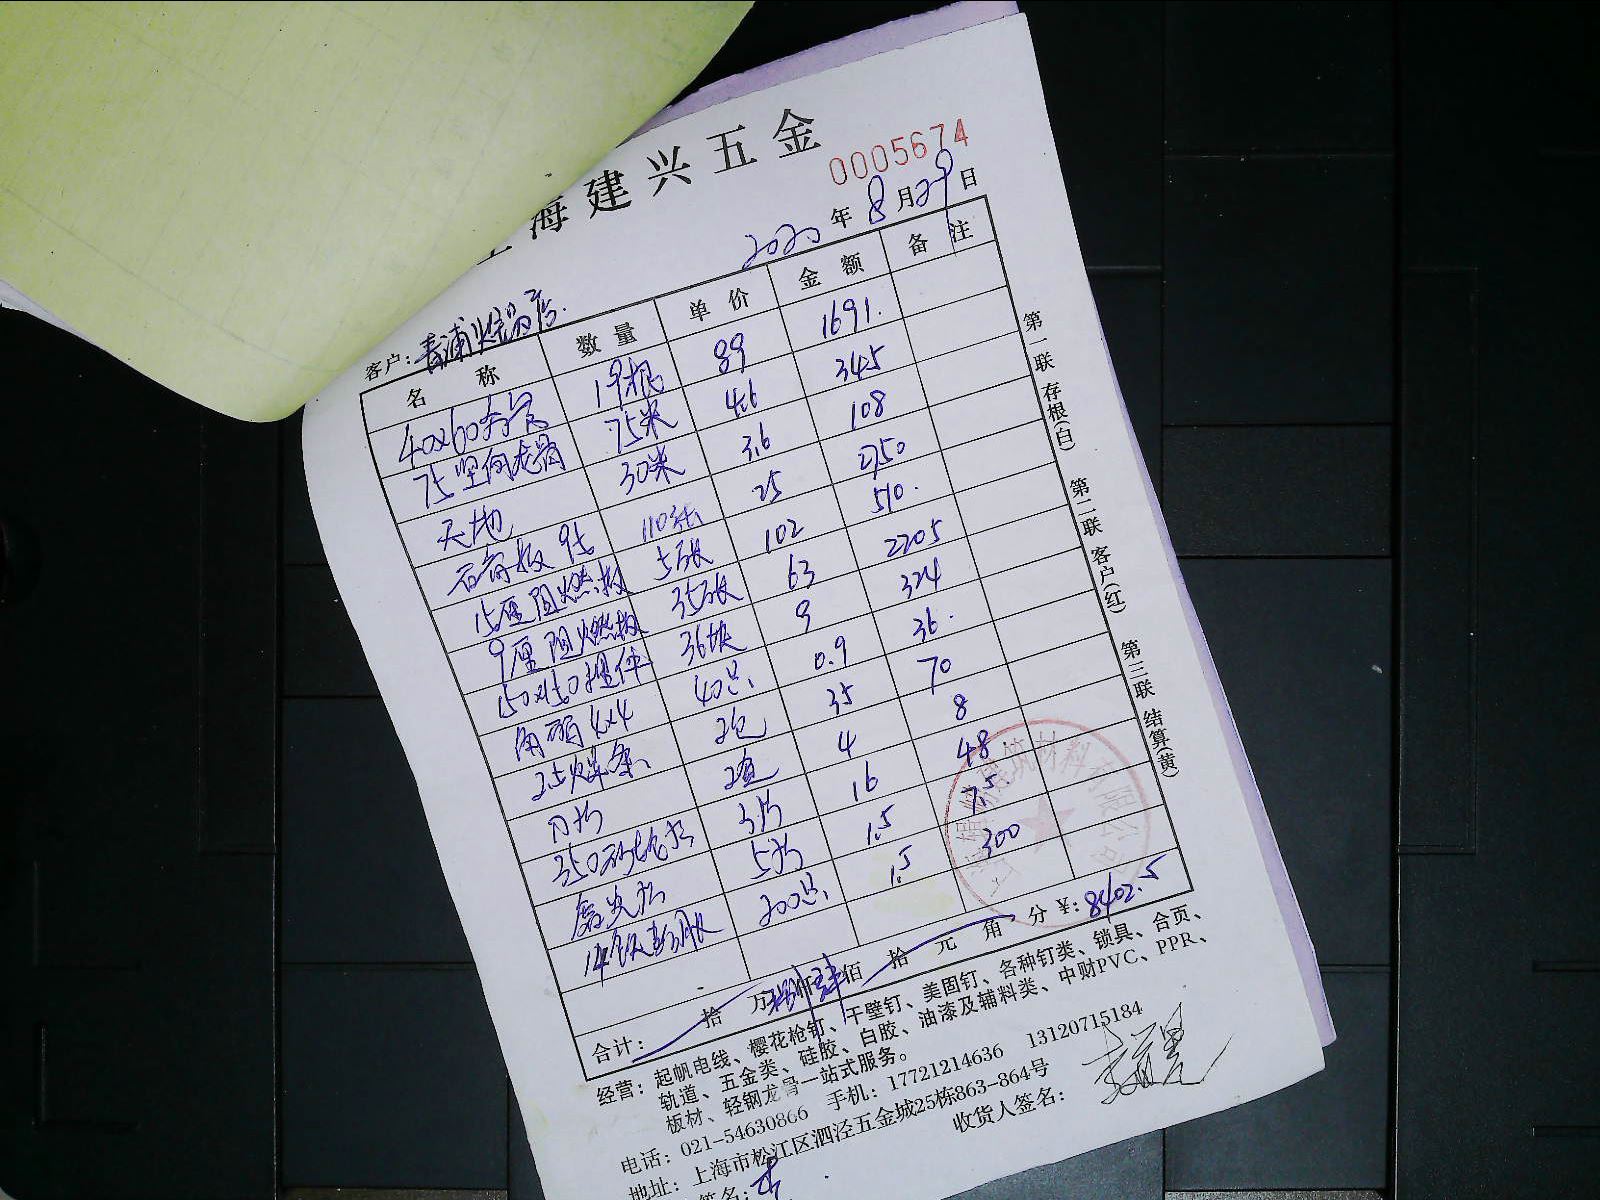 上海建兴五金
0005674
2020年8月29日
客户：青浦烧锅店
名称 数量 单价 金额 备注
40x60方管 19根 89 1691.
75竖向龙骨 75米 4.6 345
天地 30米 3.6 108
石膏板 95 110张 25 2750
15厘阻燃板 5张 102 510.
9厘阻燃板 35张 63 2205
150x150埋件 36块 9 324
角码 4x4 40只 0.9 36.
2.5焊条 2包 35 70
刀片 2盒 4 8
350砂轮片 3片 16 48
磨光片 5片 1.5 7.5
14 200只 1.5 300
合计： 拾 万 捌仟肆佰 拾 元 角 分 ¥：8402.5
经营：起帆电线、樱花枪钉、干壁钉、美固钉、各种钉类、锁具、合页、
轨道、五金类、硅胶、白胶、油漆及辅料类、中财PVC、PPR、
板材、轻钢龙骨一站式服务。
电话：021-54630866 手机：17721214636 13120715184
地址：上海市松江区泗泾五金城25栋863-864号
签名： 收货人签名：
第一联 存根(白) 第二联 客户(红) 第三联 结算(黄)